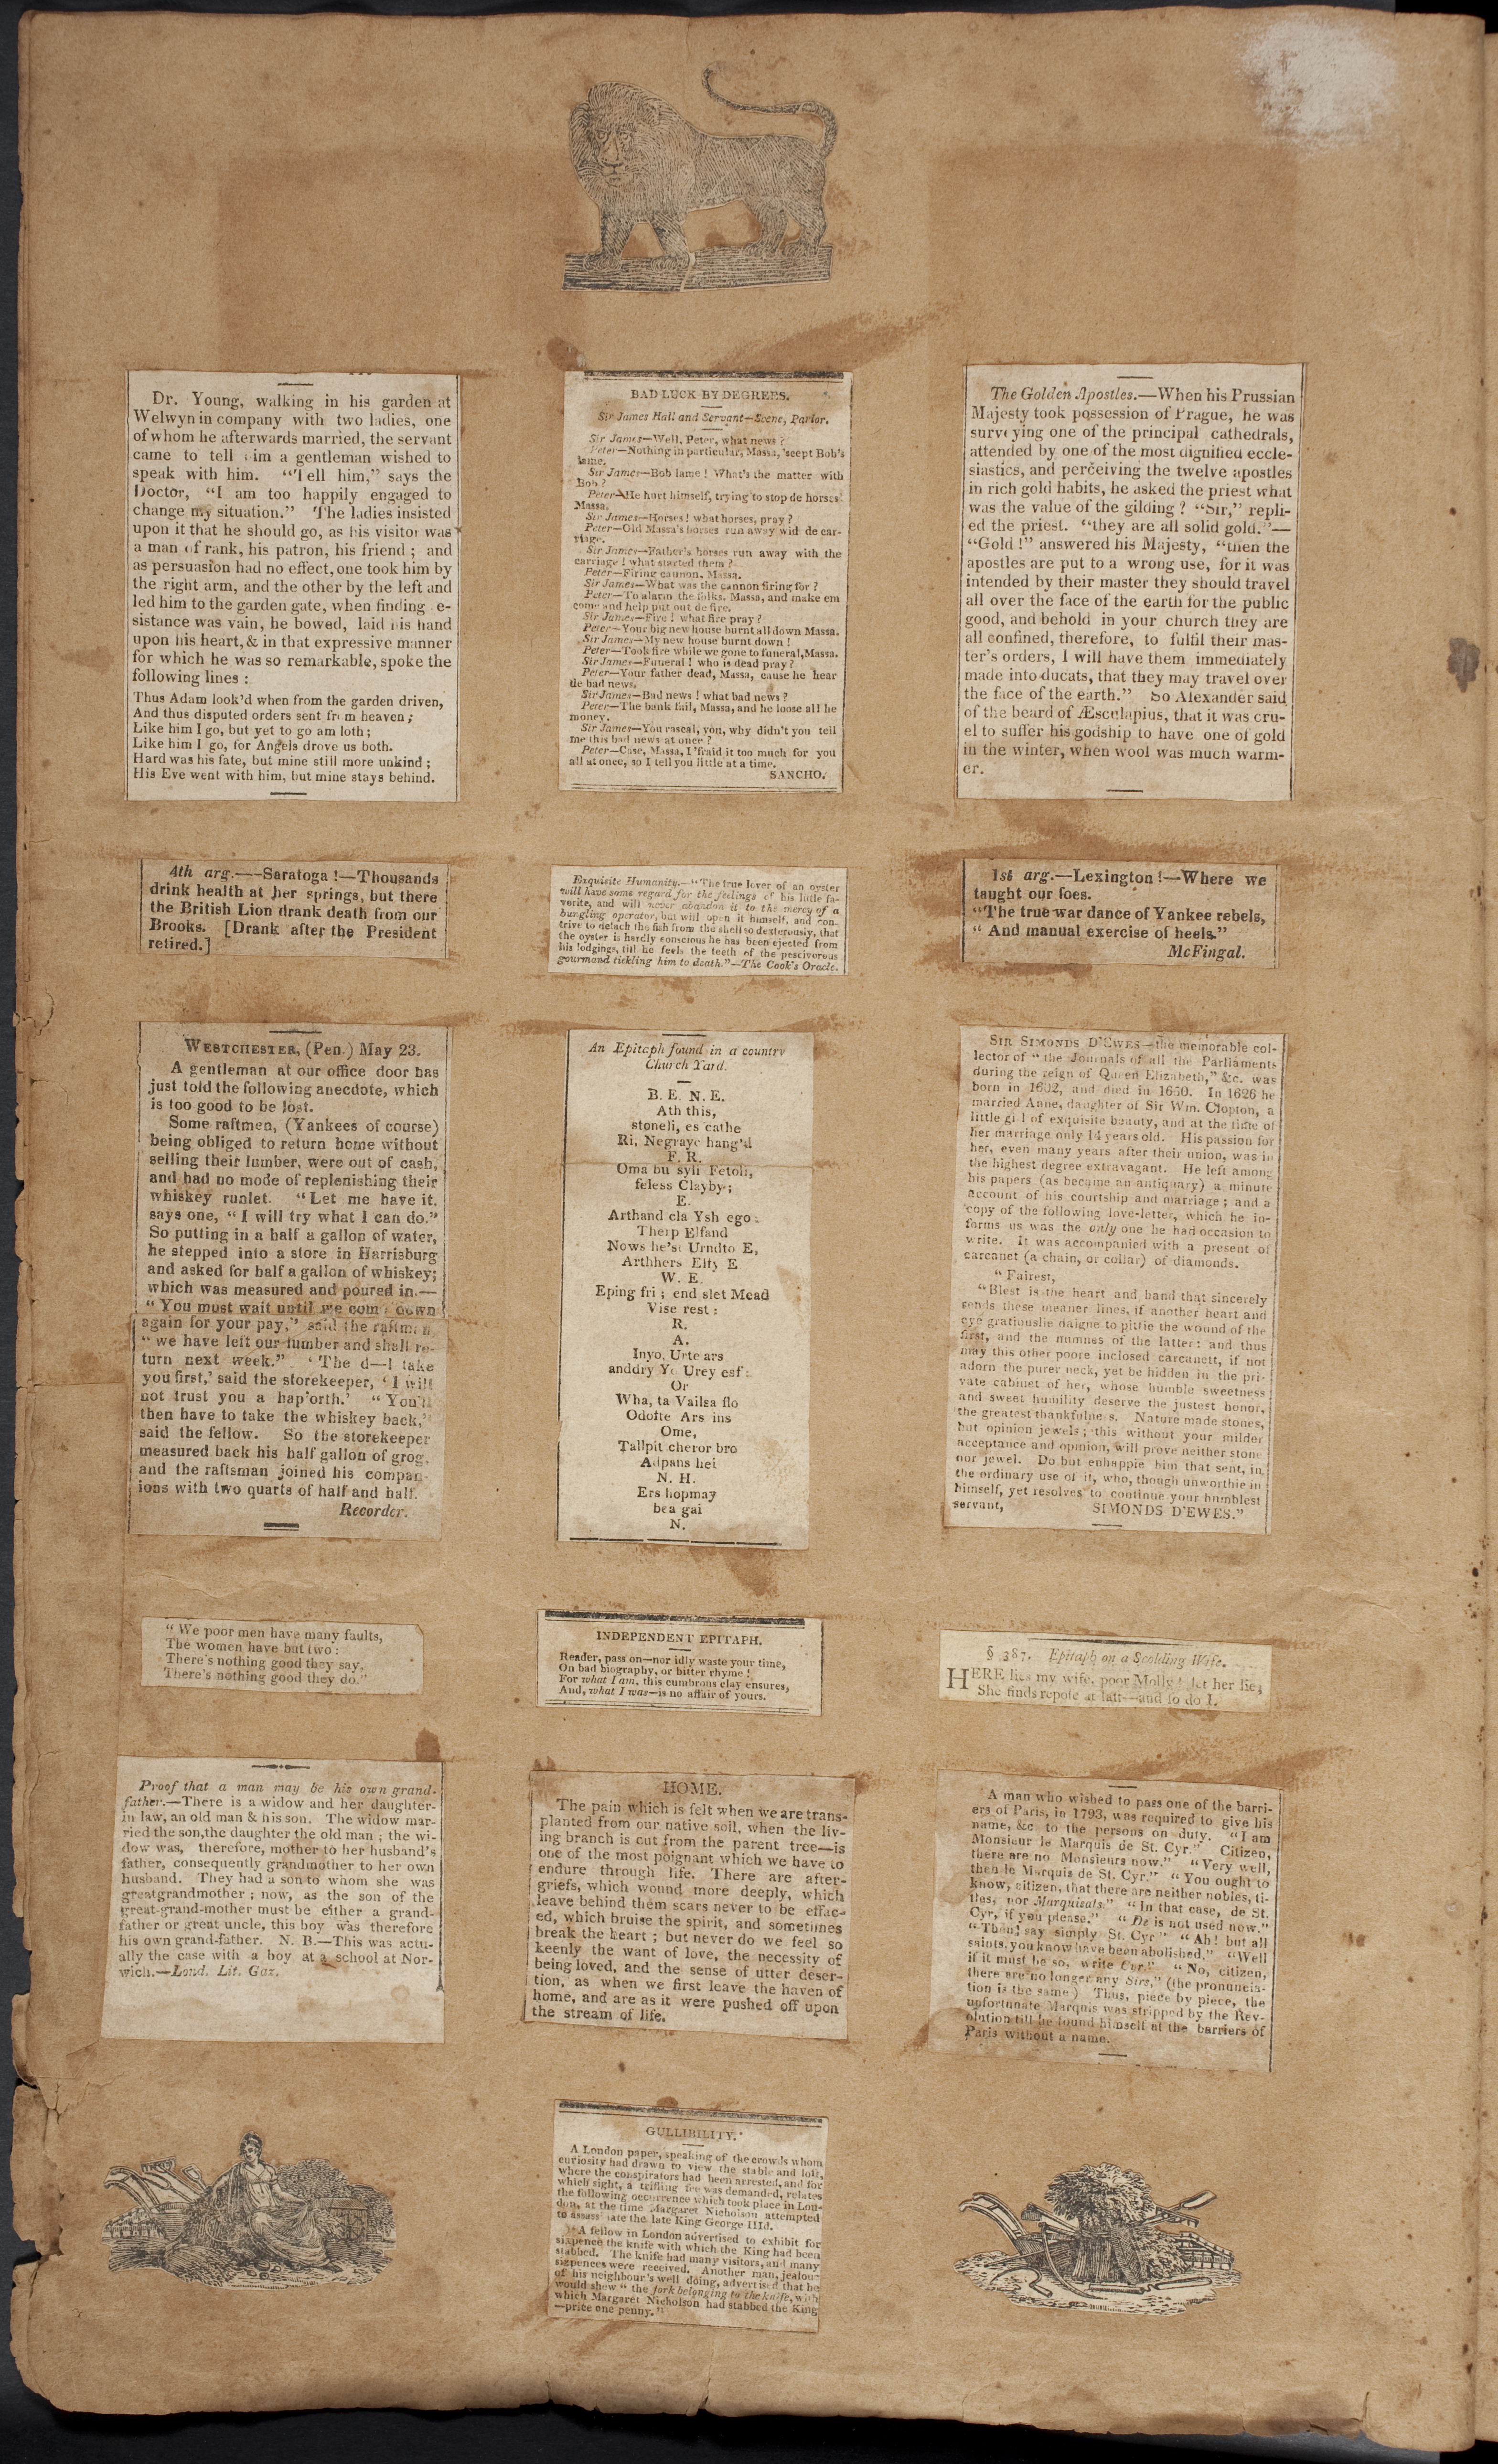 Dr. Young, walking in his garden at
Welwyn in company with two ladies, one
of whom he afterwards married, the servant
came to tell im a gentleman wished to
speak with him. "Tell him," says the
Doctor, "I am too happily engaged to
change my situation." The ladies insisted
upon it that he should go, as his visitor was
a man of rank, his patron, his friend ; and
as persuasion had no effect, one took him by
the right arm, and the other by the left and
led him to the garden gate, when finding e-
sistance was vain, he bowed, laid his hand
upon his heart, & in that expressive manner
for which he was so remarkable, spoke the
following lines :
Thus Adam look'd when from the garden driven,
And thus disputed orders sent from heaven ;
Like him I go, but yet to go am loth ;
Like him I go, for Angels drove us both.
Hard was his fate, but mine still more unkind ;
His Eve went with him, but mine stays behind.
BAD LUCK BY DEGREES.
Sir James Hall and Servant—Scene, Parlor.
Sir James—Well, Peter, what news ?
Peter—Nothing in particular, Massa, 'scept Bob's
lame.
Sir James—Bob lame ! What's the matter with
Bob ?
Peter—He hurt himself, trying to stop de horses
Massa.
Sir James—Horses ! what horses, pray ?
Peter—Old Massa's horses run away wid de car-
riage.
Sir James—Father's horses run away with the
carriage ! what started them ?
Peter—Firing cannon, Massa.
Sir James—What was the cannon firing for ?
Peter—To alarm the folks, Massa, and make em
come and help put out de fire.
Sir James—Fire ! what fire pray ?
Peter—Your big new house burnt all down Massa.
Sir James—My new house burnt down !
Peter—Took fire while we gone to funeral, Massa.
Sir James—Funeral ! who is dead pray ?
Peter—Your father dead, Massa, cause he hear
de bad news.
Sir James—Bad news ! what bad news ?
Peter—The bank fail, Massa, and he loose all he
money.
Sir James—You rascal, you, why didn't you tell
me this bad news at once ?
Peter—Case, Massa, I 'fraid it too much for you
all at once, so I tell you little at a time.
SANCHO.
The Golden Apostles.—When his Prussian
Majesty took possession of Prague, he was
surveying one of the principal cathedrals,
attended by one of the most dignified eccle-
siastics, and perceiving the twelve apostles
in rich gold habits, he asked the priest what
was the value of the gilding ? "Sir," repli-
ed the priest. "they are all solid gold."—
"Gold !" answered his Majesty, "then the
apostles are put to a wrong use, for it was
intended by their master they should travel
all over the face of the earth for the public
good, and behold in your church they are
all confined, therefore, to fulfil their mas-
ter's orders, I will have them immediately
made into ducats, that they may travel over
the face of the earth." So Alexander said
of the beard of Æsculapius, that it was cru-
el to suffer his godship to have one of gold
in the winter, when wool was much warm-
er.
4th arg.—-Saratoga !—Thousands
drink health at her springs, but there
the British Lion drank death from our
Brooks. [Drank after the President
retired.]
Exquisite Humanity.—"The true lover of an oyster
will have some regard for the feelings of his little fa-
vorite, and will never abandon it to the mercy of a
bungling operator, but will open it himself, and con-
trive to detach the fish from the shell so dexterously, that
the oyster is hardly conscious he has been ejected from
his lodgings, till he feels the teeth of the pescivorous
gourmand tickling him to death."—The Cook's Oracle.
1st arg.—Lexington !—Where we
taught our foes.
"The true war dance of Yankee rebels,
" And manual exercise of heels."
McFingal.
WESTCHESTER, (Pen.) May 23.
A gentleman at our office door has
just told the following anecdote, which
is too good to be lost.
Some raftmen, (Yankees of course)
being obliged to return home without
selling their lumber, were out of cash,
and had no mode of replenishing their
whiskey runlet. "Let me have it.
says one, "I will try what I can do."
So putting in a half a gallon of water,
he stepped into a store in Harrisburg
and asked for half a gallon of whiskey;
which was measured and poured in.—
"You must wait until we come down
again for your pay," said the raftmen
"we have left our lumber and shall re-
turn next week." 'The d—l take
you first,' said the storekeeper, 'I will
not trust you a hap'orth.' "You'll
then have to take the whiskey back,"
said the fellow. So the storekeeper
measured back his half gallon of grog,
and the raftsman joined his compan-
ions with two quarts of half and half.
Recorder.
An Epitaph found in a country
Church Yard.
B. E. N. E.
Ath this,
stoneli, es cathe
Ri, Negraye hang'd
F. R.
Oma bu syli Fetoli,
feless Clayby ;
E.
Arthand cla Ysh ego :
Therp Elfand
Nows he'st Urndto E,
Arthhers Elfy E
W. E.
Eping fri ; end slet Mead
Vise rest :
R.
A.
Inyo, Urte ars
anddry Yo Urey esf :
Or
Wha, ta Vailsa flo
Odofte Ars ins
Ome,
Tallpit cheror bro
Adpans hei
N. H.
Ers hopmay
bea gai
N.
SIR SIMONDS D'EWES—the memorable col-
lector of "the Journals of all the Parliaments
during the reign of Queen Elizabeth," &c. was
born in 1602, and died in 1650. In 1626 he
married Anne, daughter of Sir Wm. Clopton, a
little gi l of exquisite beauty, and at the time of
her marriage only 14 years old. His passion for
her, even many years after their union, was in
the highest degree extravagant. He left among
his papers (as became an antiquary) a minute
account of his courtship and marriage ; and a
copy of the following love-letter, which he in-
forms us was the only one he had occasion to
write. It was accompanied with a present of
carcanet (a chain, or collar) of diamonds.
"Fairest,
"Blest is the heart and hand that sincerely
sends these meaner lines, if another heart and
eye gratiouslie daigne to pittie the wound of the
first, and the numnes of the latter: and thus
may this other poore inclosed carcanett, if not
adorn the purer neck, yet be hidden in the pri-
vate cabinet of her, whose humble sweetness
and sweet humility deserve the justest honor,
the greatest thankfulness. Nature made stones,
but opinion jewels ; this without your milder
acceptance and opinion, will prove neither stone
nor jewel. Do but enhappie him that sent, in
the ordinary use of it, who, though unworthie in
himself, yet resolves to continue your humblest
servant, SIMONDS D'EWES."
"We poor men have many faults,
The women have but two :
There's nothing good they say,
There's nothing good they do."
INDEPENDENT EPITAPH.
Reader, pass on—nor idly waste your time,
On bad biography, or bitter rhyme !
For what I am, this cumbrous clay ensures,
And, what I was—is no affair of yours.
§ 387. Epitaph on a Scolding Wife.
HERE lies my wife, poor Molly ! let her lie,
She finds repose at last—and so do I.
Proof that a man may be his own grand-
father.—There is a widow and her daughter-
in law, an old man & his son. The widow mar-
ried the son, the daughter the old man ; the wi-
dow was, therefore, mother to her husband's
father, consequently grandmother to her own
husband. They had a son to whom she was
greatgrandmother ; now, as the son of the
great-grand-mother must be either a grand-
father or great uncle, this boy was therefore
his own grand-father. N. B.—This was actu-
ally the case with a boy at a school at Nor-
wich.—Lond. Lit. Gaz.
HOME.
The pain which is felt when we are trans-
planted from our native soil, when the liv-
ing branch is cut from the parent tree—is
one of the most poignant which we have to
endure through life. There are after-
griefs, which wound more deeply, which
leave behind them scars never to be effac-
ed, which bruise the spirit, and sometimes
break the heart ; but never do we feel so
keenly the want of love, the necessity of
being loved, and the sense of utter deser-
tion, as when we first leave the haven of
home, and are as it were pushed off upon
the stream of life.
A man who wished to pass one of the barri-
ers of Paris, in 1793, was required to give his
name, &c to the persons on duty. "I am
Monsieur le Marquis de St. Cyr." Citizen,
there are no Monsieurs now." "Very well,
then le Marquis de St. Cyr." "You ought to
know, citizen, that there are neither nobles, ti-
tles, nor Marquisats." "In that case, de St.
Cyr, if you please." "De is not used now."
"Then say simply St. Cyr" "Ah! but all
saints, you know have been abolished." "Well
if it must be so, write Cyr." "No, citizen,
there are no longer any Sires," (the pronuncia-
tion is the same ) Thus, piece by piece, the
unfortunate Marquis was stripped by the Rev-
olution till he found himself at the barriers of
Paris without a name.
GULLIBILITY.
A London paper, speaking of the crowds whom
curiosity had drawn to view the stable and loft,
where the conspirators had been arrested, and for
which sight, a trifling fee was demanded, relates
the following occurrence which took place in Lon-
don, at the time Margaret Nicholson attempted
to assassinate the late King George IIId.
A fellow in London advertised to exhibit for
sixpence the knife with which the King had been
stabbed. The knife had many visitors, and many
sixpences were received. Another man, jealous
of his neighbour's well doing, advertised that he
would shew "the fork belonging to the knife, with
which Margaret Nicholson had stabbed the King
—price one penny."